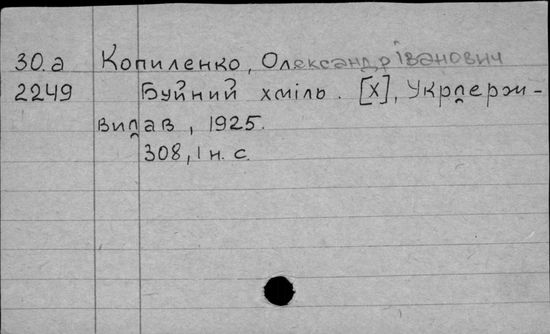 30.а Копиленко, Олександр Іванович
2249 Буйний хміль. [Х], Укрдерж-
видав, 1925.
308, 1 н. с.